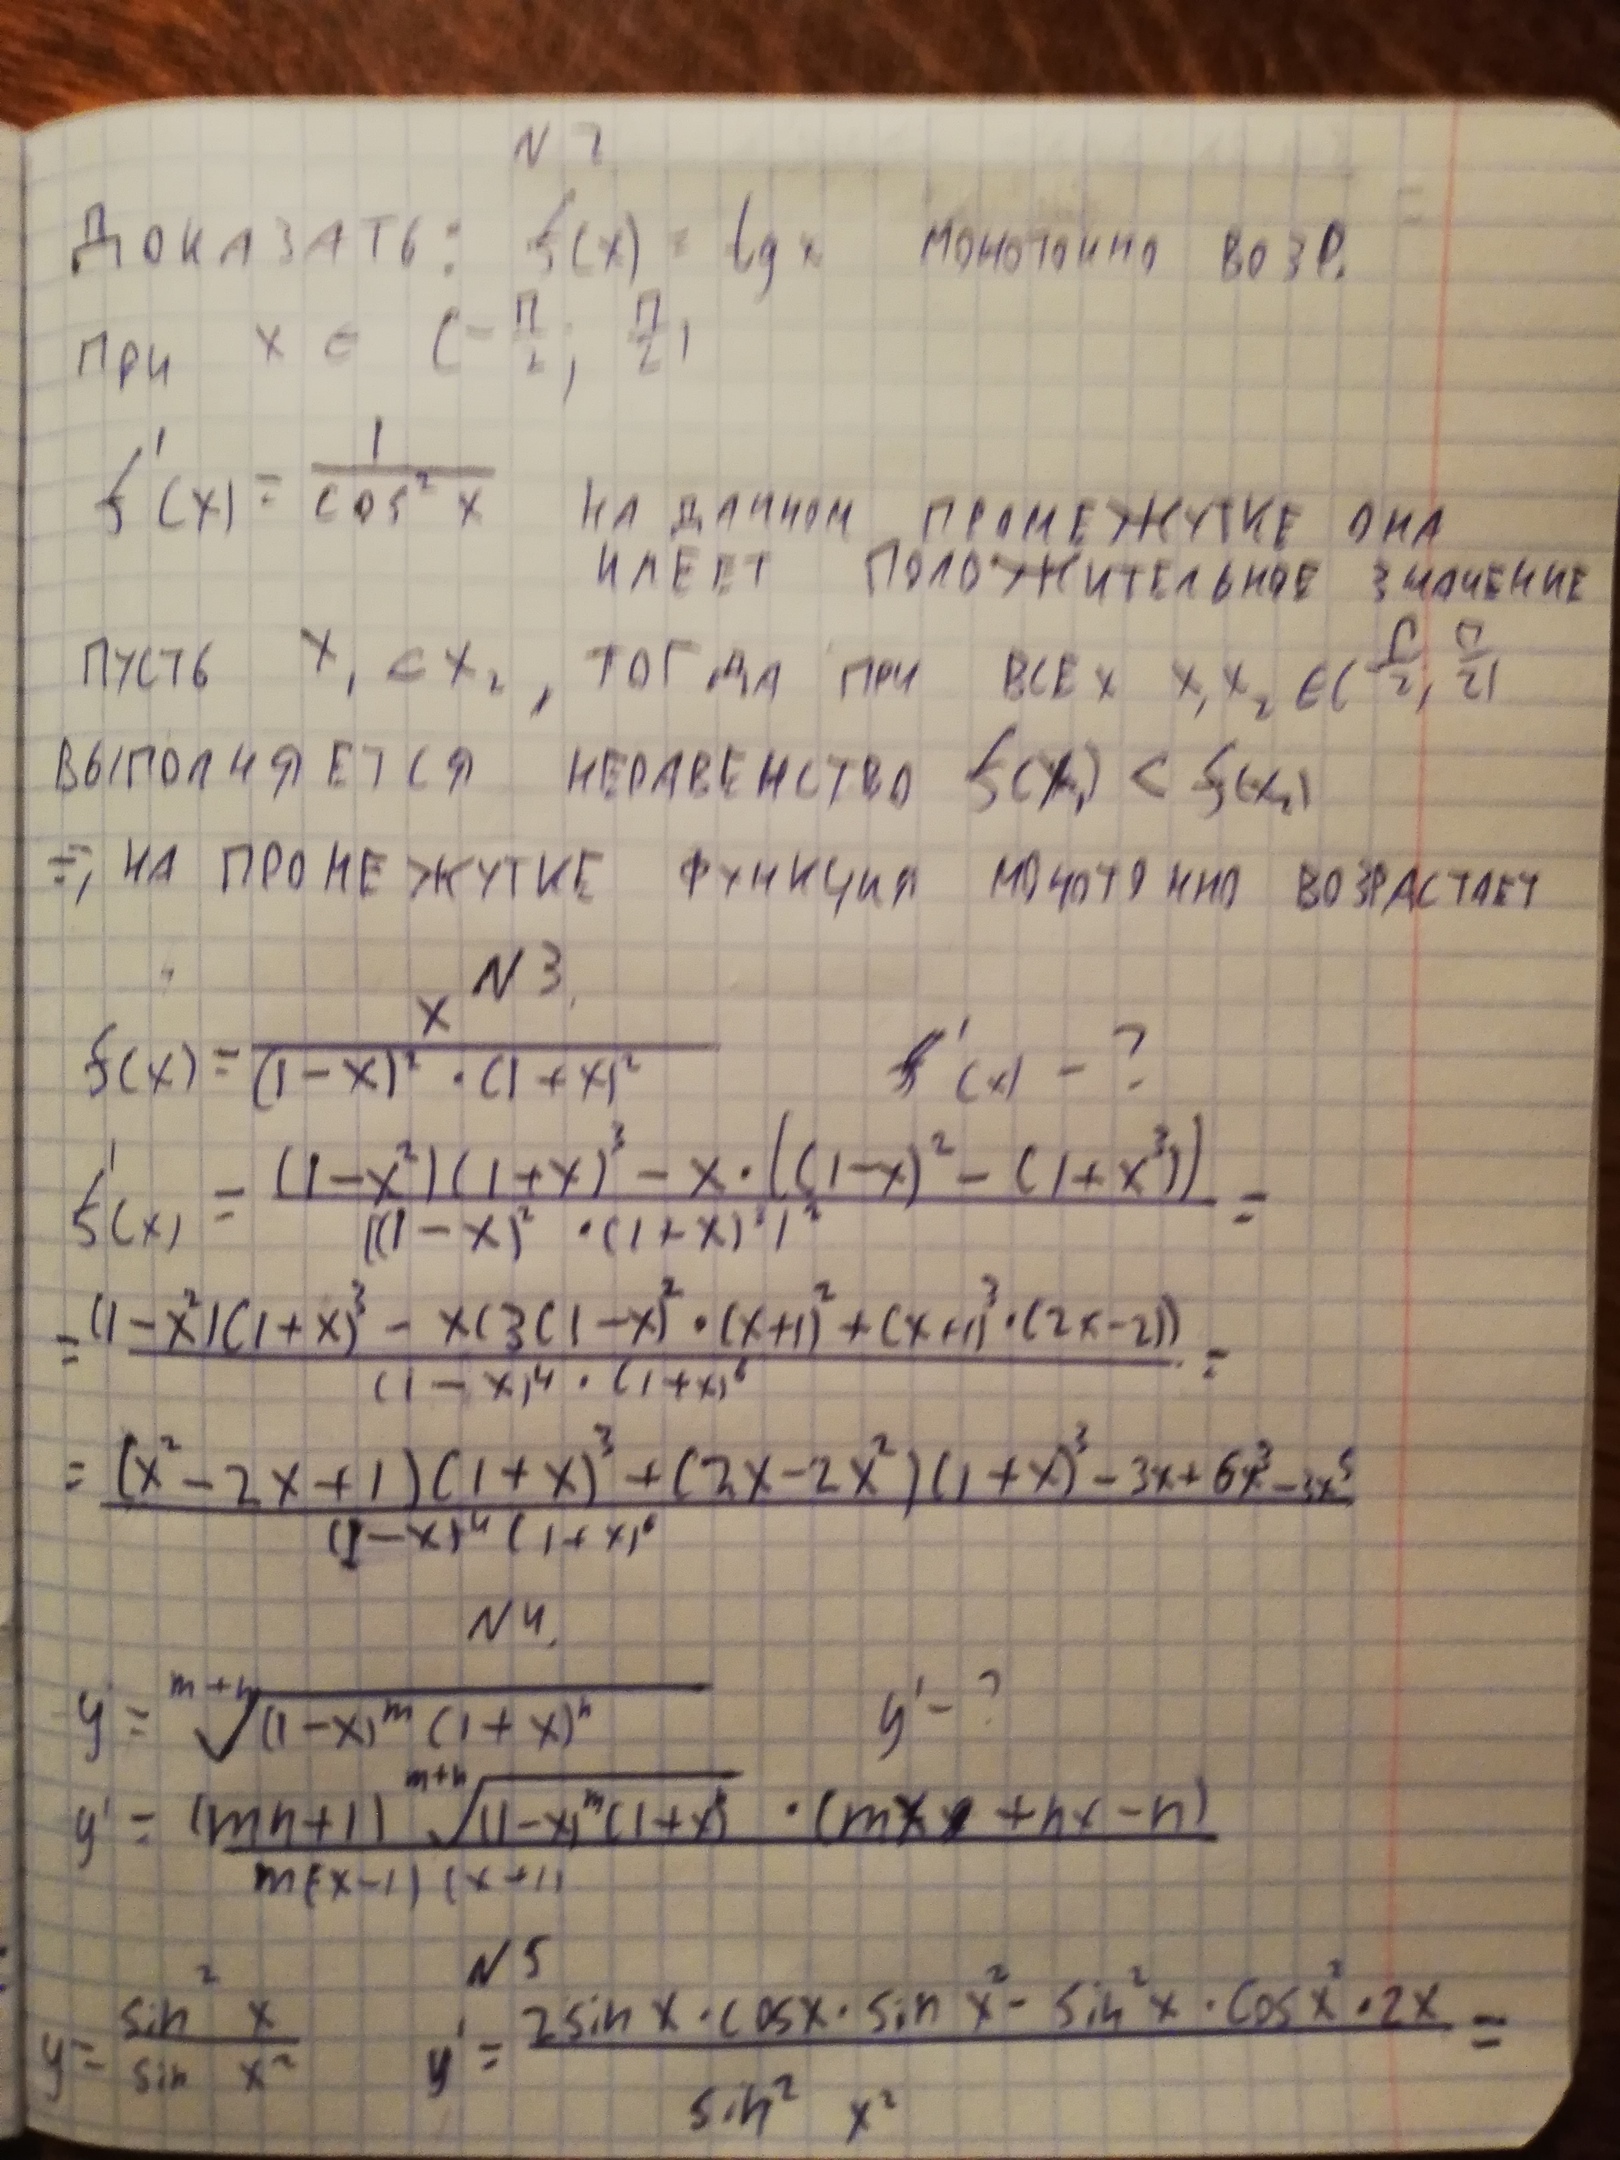 N 2
ДОКАЗАТЬ: f(x) = tg x МОНОТОННО ВОЗР.
ПРИ x ∈ (-П/2; П/2)
f'(x) = 1/cos² x НА ДАННОМ ПРОМЕЖУТКЕ ОНА
ИМЕЕТ ПОЛОЖИТЕЛЬНОЕ ЗНАЧЕНИЕ
ПУСТЬ x₁ < x₂, ТОГДА ПРИ ВСЕХ x₁ x₂ ∈ (П/2; П/2)
ВЫПОЛНЯЕТСЯ НЕРАВЕНСТВО f(x₁) < f(x₂)
=> НА ПРОМЕЖУТКЕ ФУНКЦИЯ МОНОТОННО ВОЗРАСТАЕТ
N 3.
f(x) = x/((1-x)² · (1+x)²) f'(x) - ?
f'(x) = ((1-x²)(1+x)³ - x·((1-x)² - (1+x³)))/((1-x)² · (1+x)³)² =
= ((1-x²)(1+x)³ - x(3(1-x)² · (x+1)² + (x+1)³ · (2x-2)))/((1-x)⁴ · (1+x)⁶) =
= ((x² - 2x + 1)(1+x)³ + (2x - 2x²)(1+x)³ - 3x + 6x³ - 3x⁵)/((1-x)⁴ (1+x)⁶)
N 4.
y = ᵐ⁺ⁿ√((1-x)ᵐ (1+x)ⁿ) y' - ?
y' = ((mn+1) ᵐ⁺ⁿ√((1-x)ᵐ(1+x)ⁿ) · (mx + nx - n))/(m(x-1)(x+1))
N 5
y = sin² x/sin x² y' = (2 sin x · cos x · sin x² - sin² x · cos x² · 2x)/sin² x² =